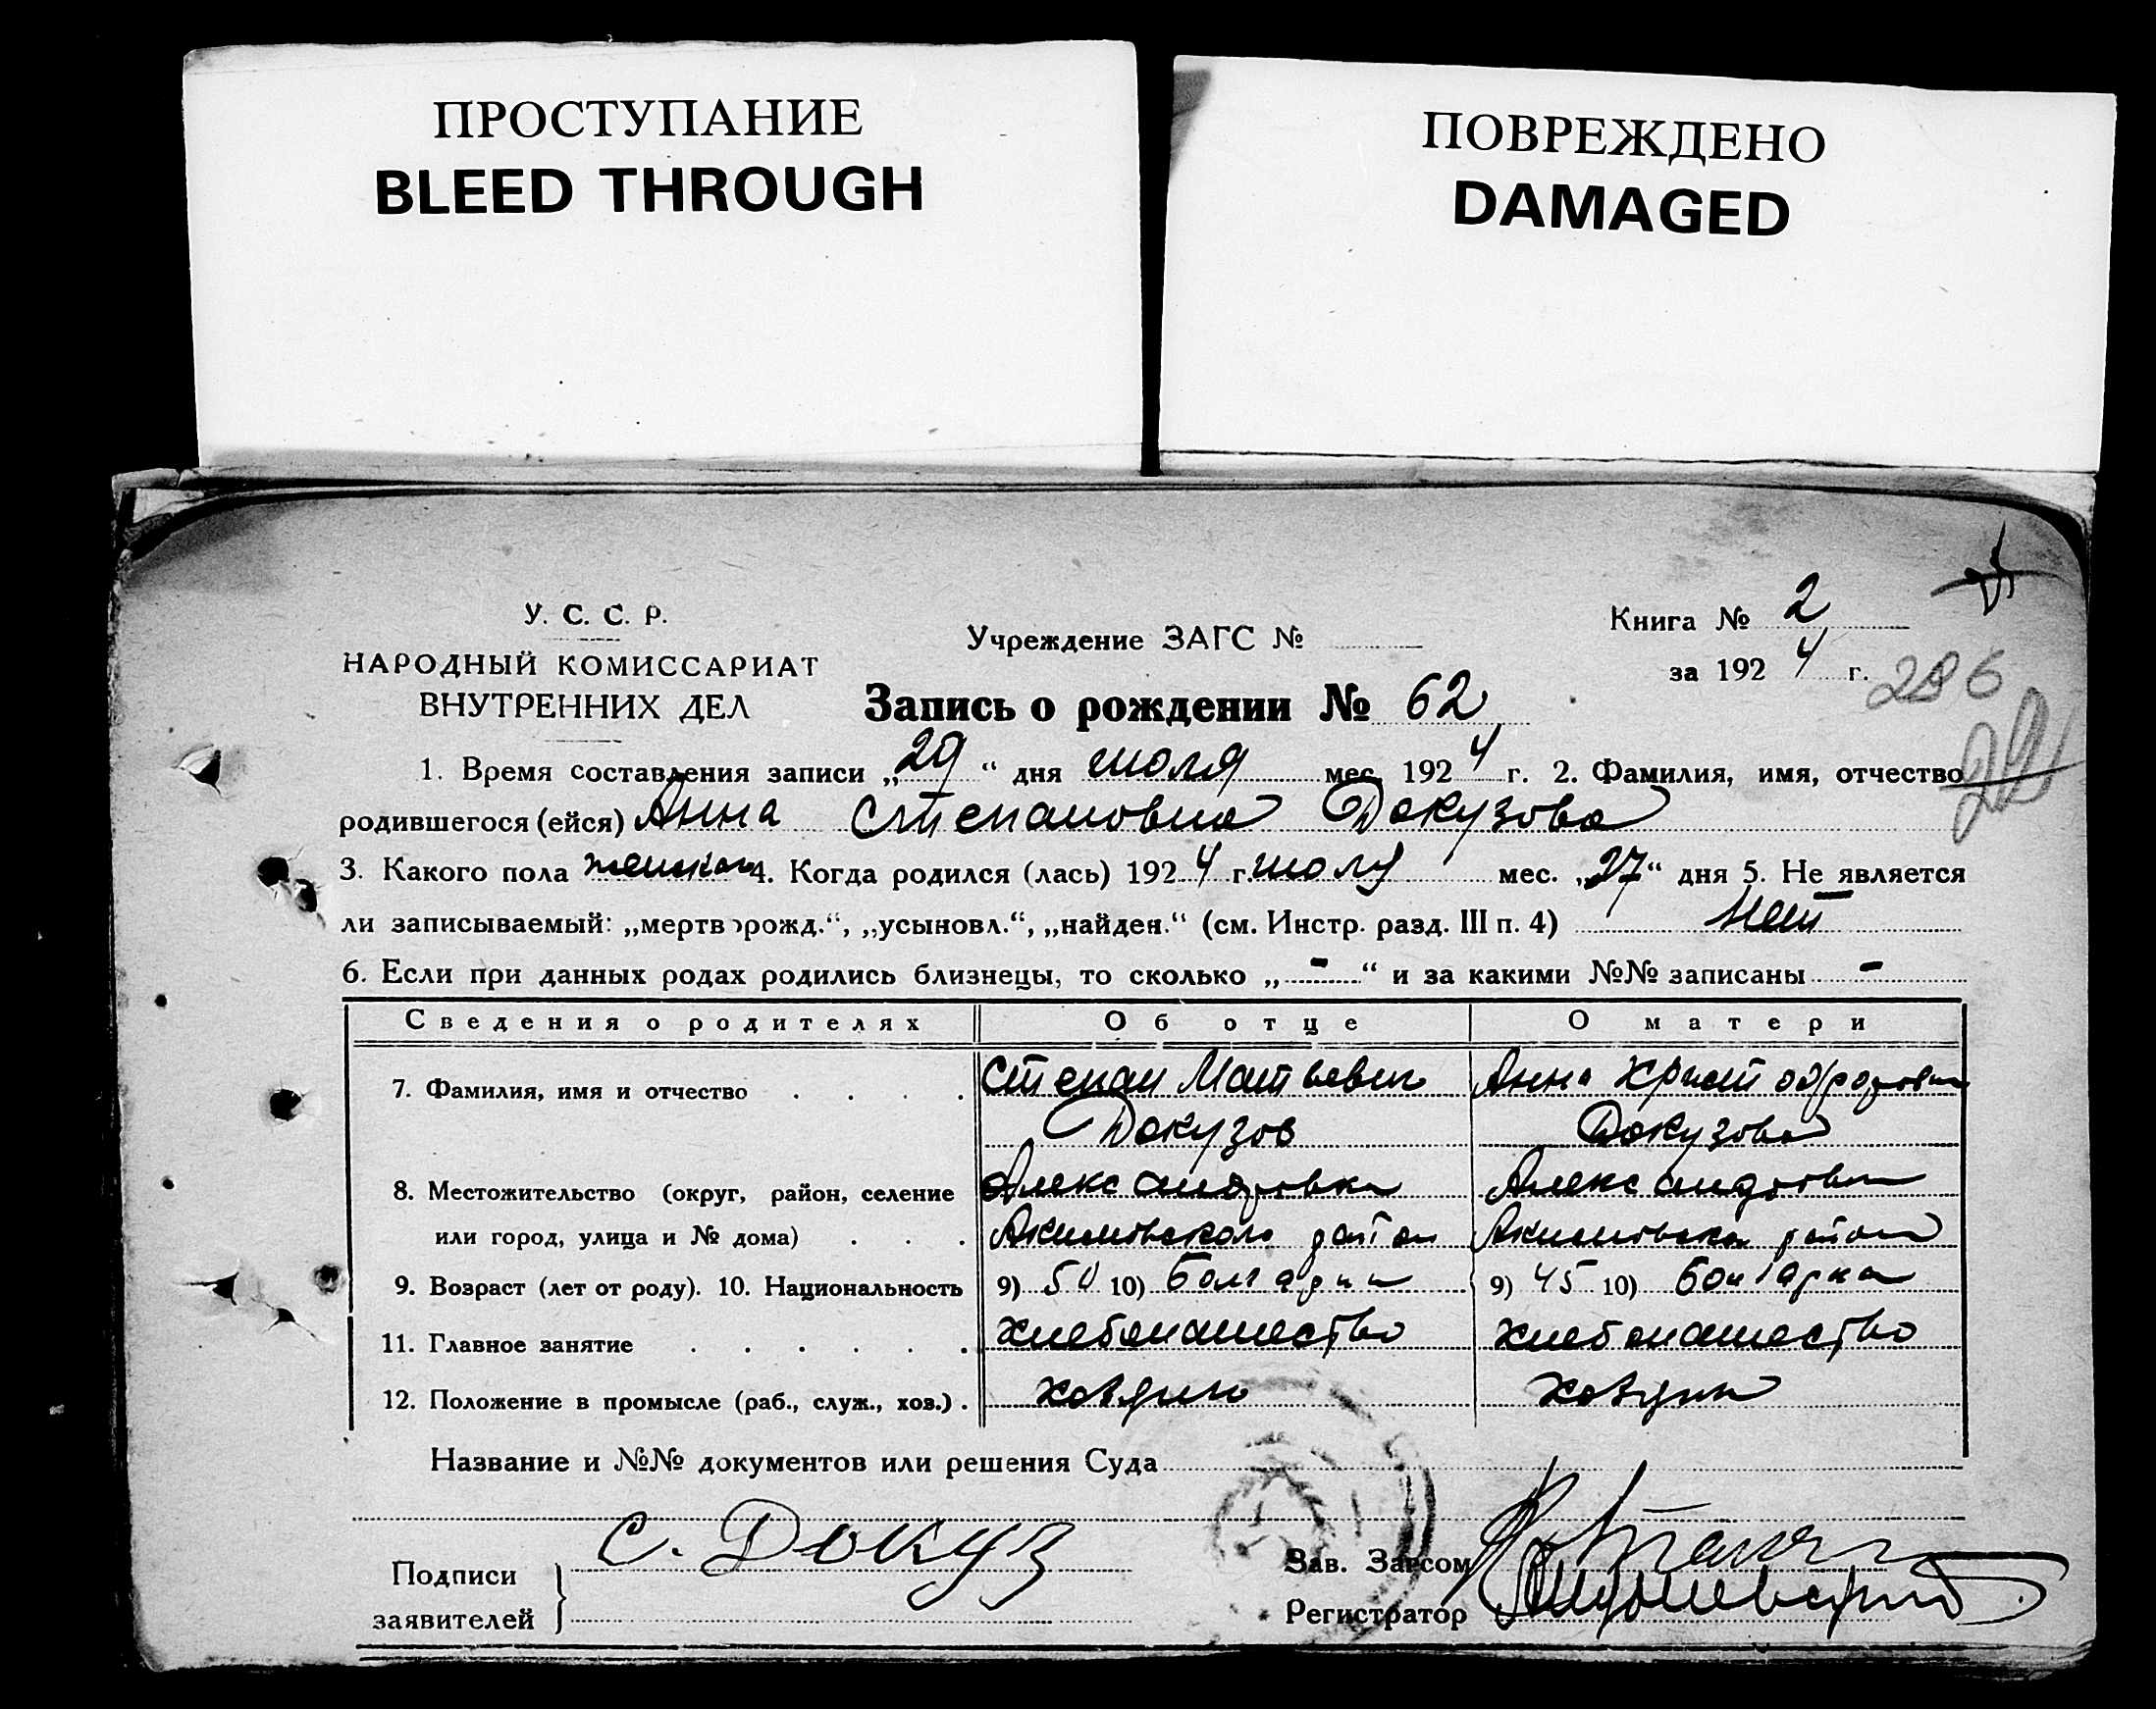 ПРОСТУПАНИЕ
BLEED THROUGH
ПОВРЕЖДЕНО
DAMAGED
У. С. С. Р.
НАРОДНЫЙ КОМИССАРИАТ
ВНУТРЕННИХ ДЕЛ
Учреждение ЗАГС №
Книга № 2
за 1924 г.
286
Запись о рождении № 62
1. Время составления записи „29“ дня июля мес. 1924 г. 2. Фамилия, имя, отчество
родившегося (ейся) Анна Степановна Докузова
3. Какого пола женского 4. Когда родился (лась) 1924 г. июля мес. „27“ дня 5. Не является
ли записываемый: „мертворожд.“, „усыновл.“, „найден.“ (см. Инстр. разд. III п. 4) Нет
6. Если при данных родах родились близнецы, то сколько „-“ и за какими №№ записаны -
Сведения о родителях Об отце О матери
7. Фамилия, имя и отчество . . . . Степан Матвевич Анна Христофоровна
Докузов Докузова
8. Местожительство (округ, район, селение Александровка Александровка
или город, улица и № дома) . . . Акимовского район Акимовска район
9. Возраст (лет от роду). 10. Национальность 9) 50 10) Болгарин 9) 45 10) Болгарка
11. Главное занятие . . . . . . хлебопашество хлебопашество
12. Положение в промысле (раб., служ., хоз.) . хозяин хозяин
Название и №№ документов или решения Суда
Подписи
заявителей
С. Докуз
Зав. Загсом
Регистратор